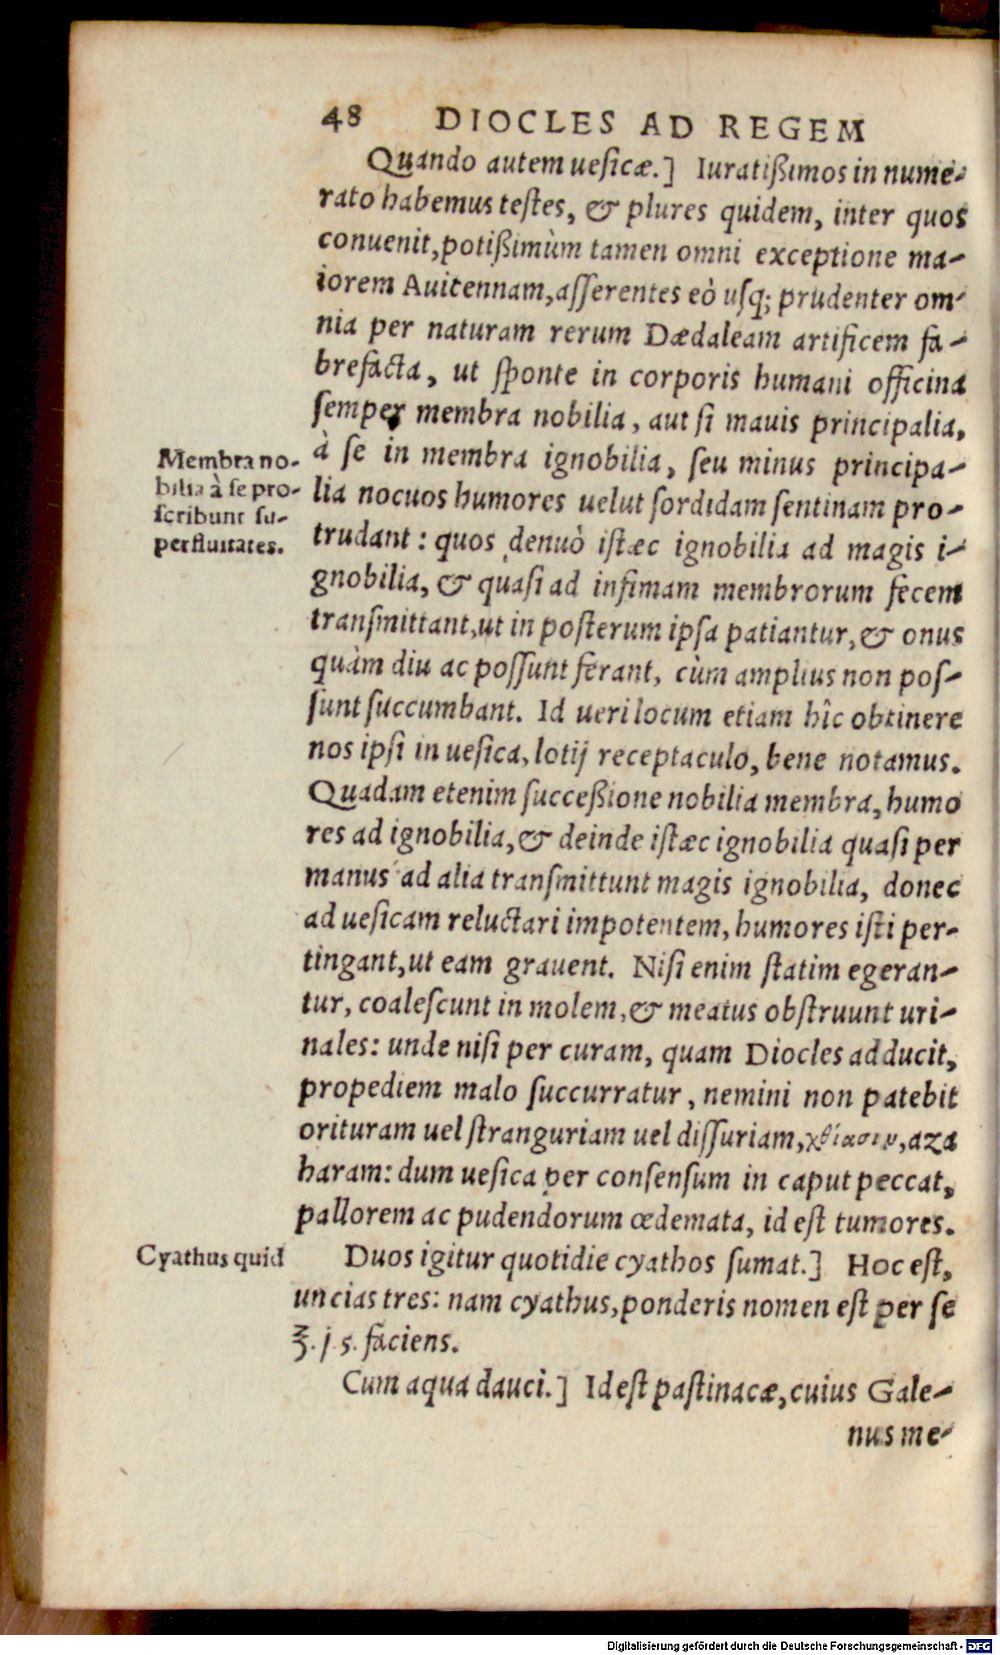 48 DIOCLES AD REGEM
Quando autem uesicæ.] Iuratißimos in nume-
rato habemus testes, & plures quidem, inter quos
conuenit, potißimùm tamen omni exceptione ma-
iorem Auicennam, asserentes eò usq; prudenter om-
nia per naturam rerum Dædaleam artificem fa-
brefacta, ut sponte in corporis humani officina
semper membra nobilia, aut si mauis principalia,
à se in membra ignobilia, seu minus principa-
lia nocuos humores uelut sordidam sentinam pro-
trudant: quos denuò istæc ignobilia ad magis i-
gnobilia, & quasi ad infimam membrorum fecem
transmittant, ut in posterum ipsa patiantur, & onus
quàm diu ac possunt ferant, cùm amplius non pos-
sunt succumbant. Id ueri locum etiam hîc obtinere
nos ipsi in uesica, lotij receptaculo, bene notamus.
Quadam etenim succeßione nobilia membra, humo
res ad ignobilia, & deinde istæc ignobilia quasi per
manus ad alia transmittunt magis ignobilia, donec
ad uesicam reluctari impotentem, humores isti per-
tingant, ut eam grauent. Nisi enim statim egeran-
tur, coalescunt in molem, & meatus obstruunt uri-
nales: unde nisi per curam, quam Diocles adducit,
propediem malo succurratur, nemini non patebit
orituram uel stranguriam uel dissuriam, aza
haram: dum uesica per consensum in caput peccat,
pallorem ac pudendorum œdemata, id est tumores.
Duos igitur quotidie cyathos sumat.] Hoc est,
uncias tres: nam cyathus, ponderis nomen est per se
℥. j. s. faciens.
Cum aqua dauci.] Id est pastinacæ, cuius Gale-
nus me-
Membra no-
bilia à se pro-
scribunt su-
perfluitates.
Cyathus quid
Digitalisierung gefördert durch die Deutsche Forschungsgemeinschaft - DFG